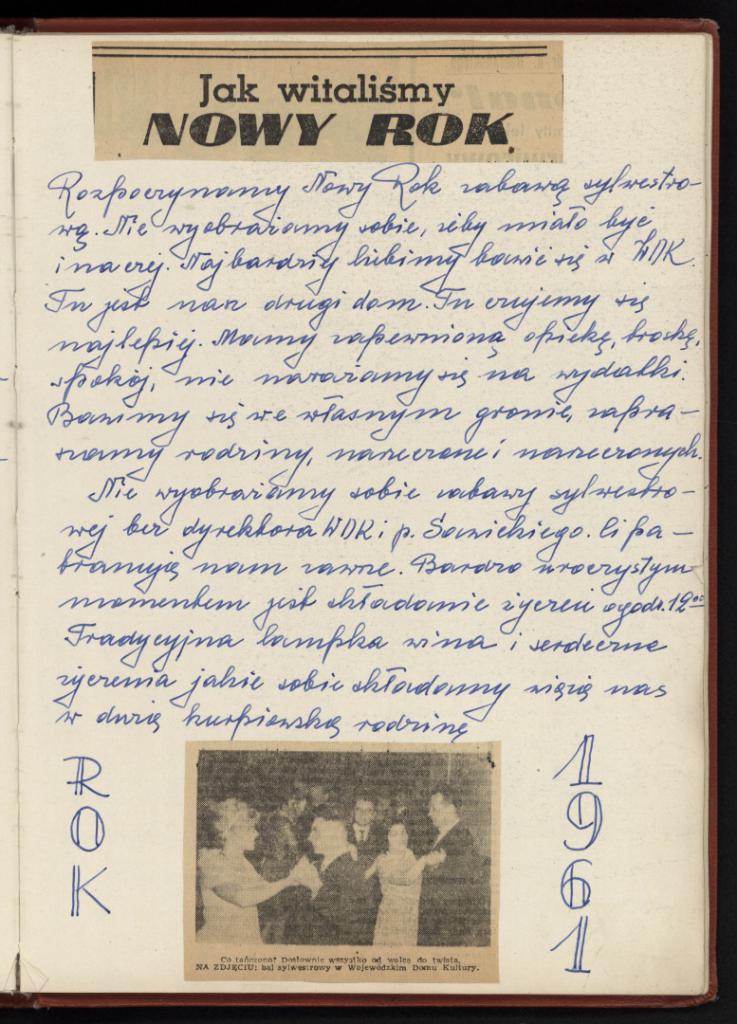 Jak witaliśmy
NOWY ROK
Rozpoczynamy Nowy Rok zabawą sylwestro-
wą. Nie wyobrażamy sobie, żeby miało być
inaczej. Najbardziej lubimy bawić się w WDK.
Tu jest nasz drugi dom. Tu czujemy się
najlepiej. Mamy zapewnioną opiekę, troskę,
spokój, nie narażamy się na wydatki.
Bawimy się we własnym gronie, zapra-
szamy rodziny, narzeczone i narzeczonych.
Nie wyobrażamy sobie zabawy sylwestro-
wej bez dyrektora WDK i p. Sawickiego. Ci pa-
tronują nam zawsze. Bardzo uroczystym
momentem jest składanie życzeń o godz. 12⁰⁰
Tradycyjna lampka wina i serdeczne
życzenia jakie sobie składamy wiążą nas
w dużą kurpiowską rodzinę
ROK
1961
Co tańczono? Dosłownie wszystko od walca do twista.
NA ZDJĘCIU: bal sylwestrowy w Wojewódzkim Domu Kultury.